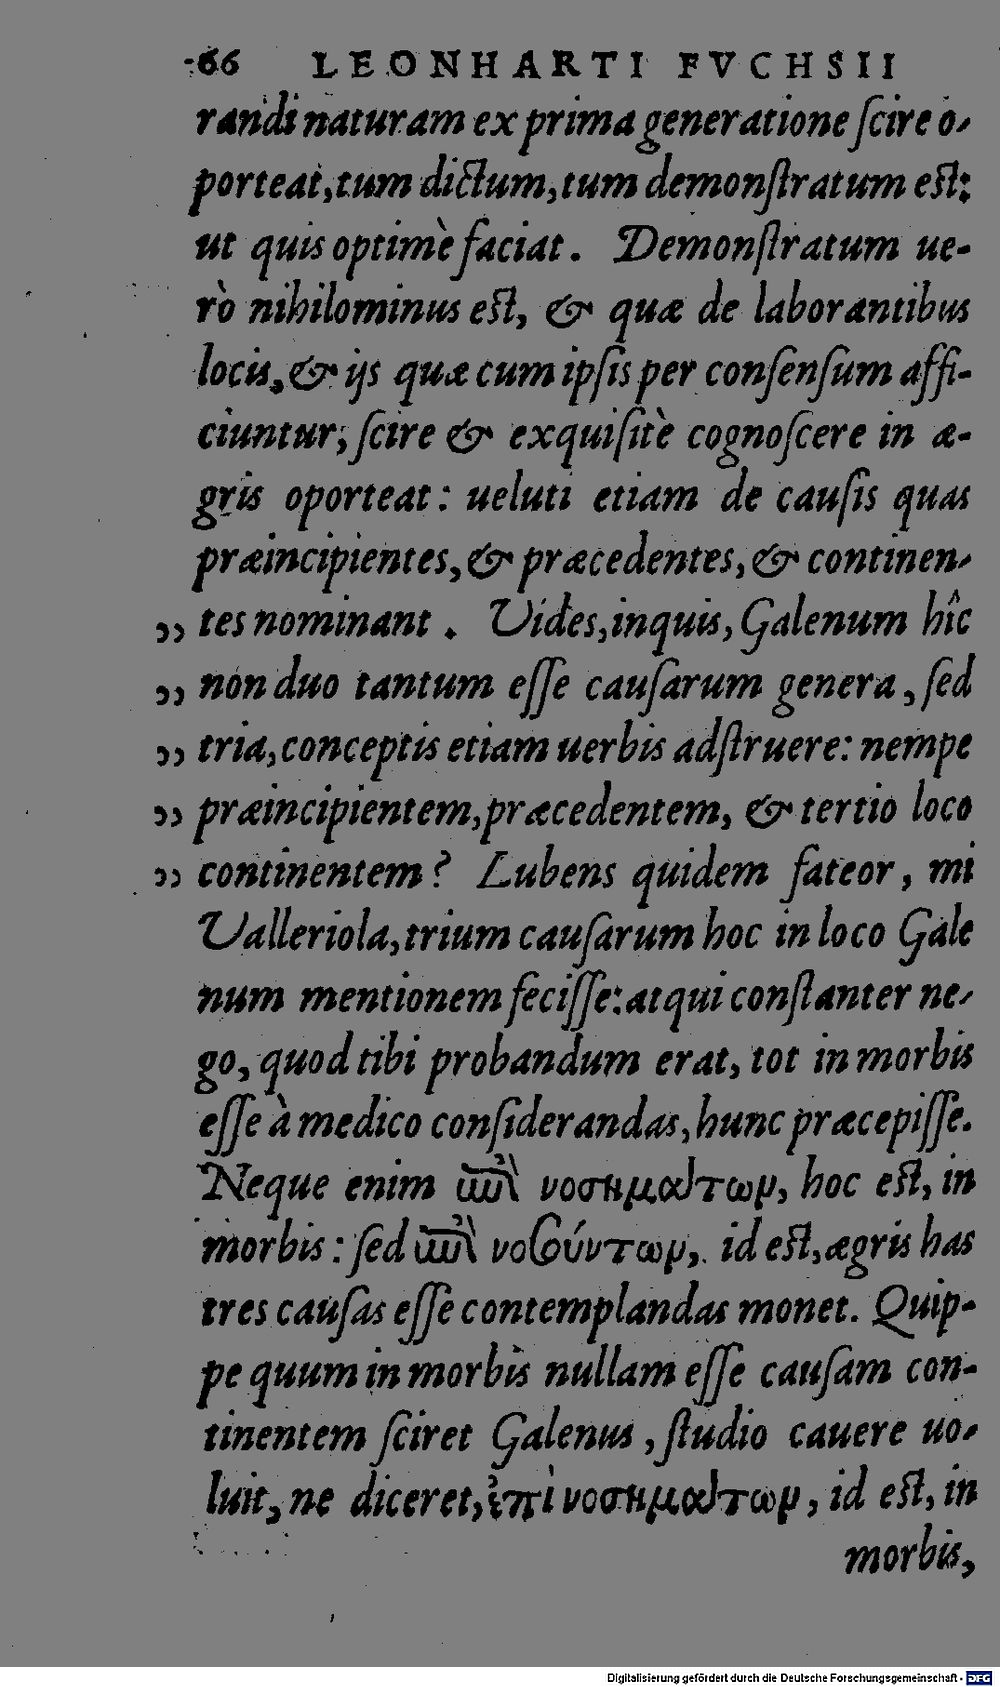 66 LEONHARTI FVCHSII
randi naturam ex prima generatione ſcire o-
porteat, tum dictum, tum demonſtratum eſt:
ut quis optimè faciat. Demonſtratum ue-
rò nihilominus eſt, & quæ de laborantibus
locis, & ijs quæ cum ipſis per conſenſum affi-
ciuntur, ſcire & exquiſitè cognoſcere in æ-
gris oporteat: ueluti etiam de cauſis quas
præincipientes, & præcedentes, & continen-
,, tes nominant. Uides, inquis, Galenum hîc
,, non duo tantum eſſe cauſarum genera, ſed
,, tria, conceptis etiam uerbis adſtruere: nempe
,, præincipientem, præcedentem, & tertio loco
,, continentem? Lubens quidem fateor, mi
Ualleriola, trium cauſarum hoc in loco Gale
num mentionem feciſſe: atqui conſtanter ne-
go, quod tibi probandum erat, tot in morbis
eſſe à medico conſiderandas, hunc præcepiſſe.
Neque enim ἐπὶ νοσημάτων, hoc eſt, in
morbis: ſed ἐπὶ νοσούντων, id eſt, ægris has
tres cauſas eſſe contemplandas monet. Quip-
pe quum in morbis nullam eſſe cauſam con-
tinentem ſciret Galenus, ſtudio cauere uo-
luit, ne diceret, ἐπὶ νοσημάτων, id eſt, in
morbis,
Digitalisierung gefördert durch die Deutsche Forschungsgemeinschaft - DFG